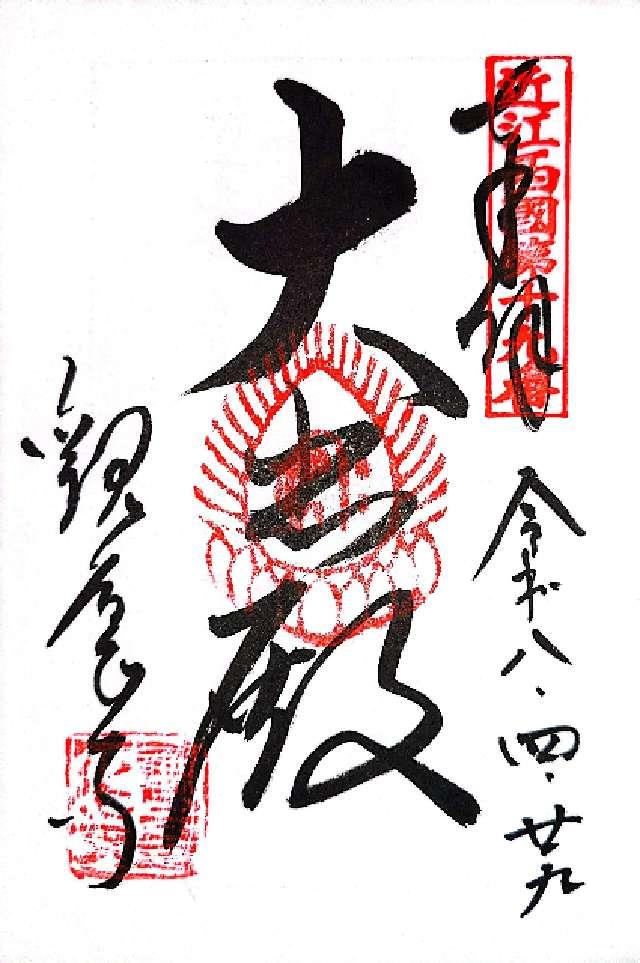 近江西國第十九番
奉拝
令和八・四・廿九
大悲殿
観音正寺